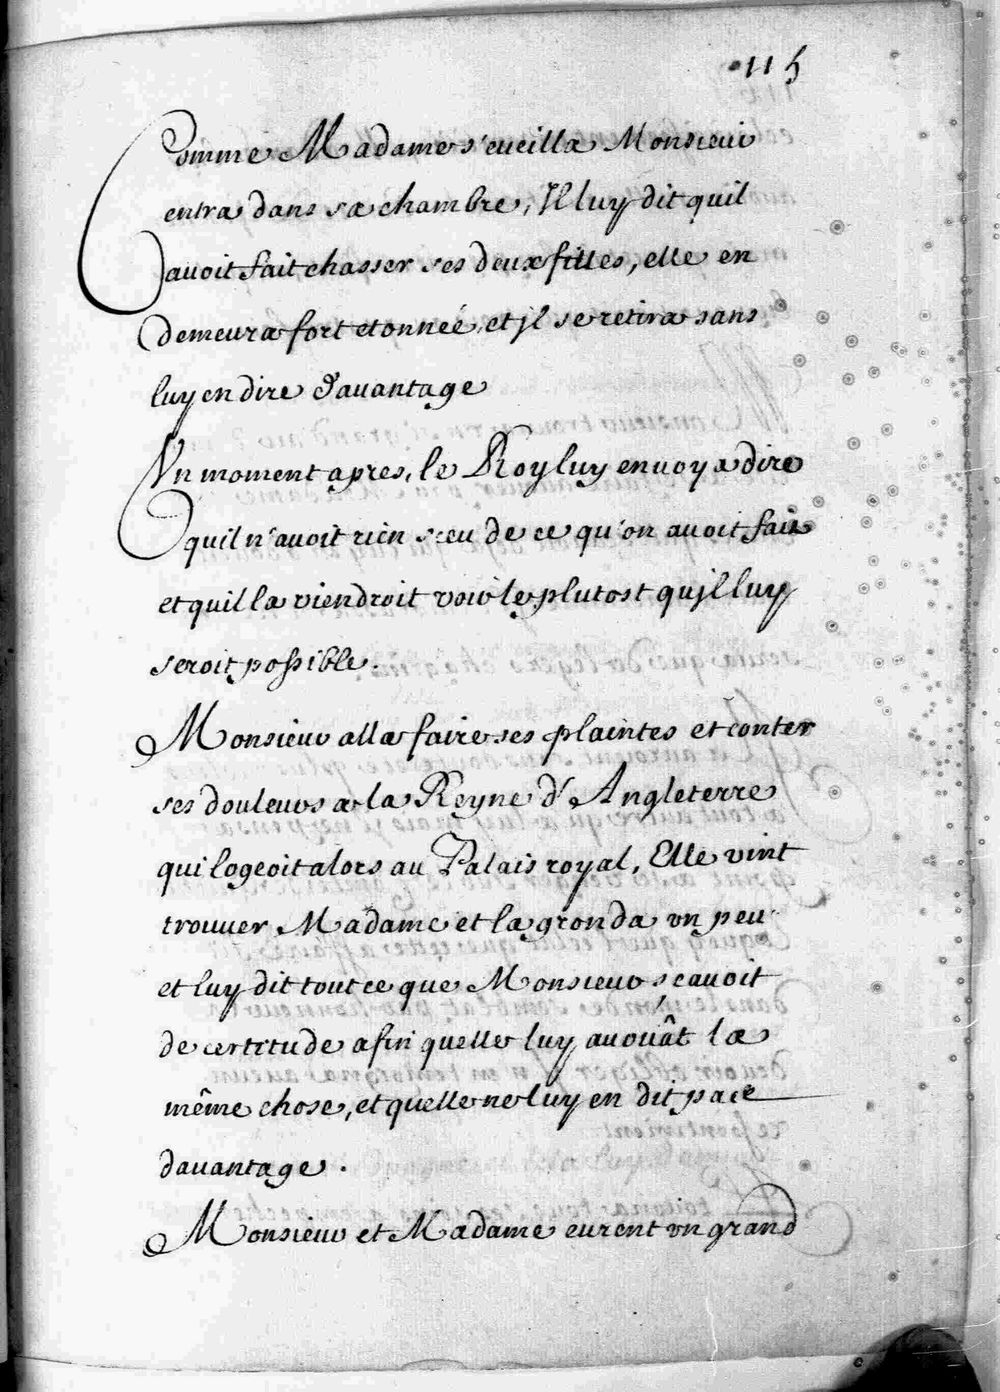 115
Comme Madame s'eueilla Monsieur
entra dans sa chambre, Il luy dit quil
auoit fait chasser ses deux filles, elle en
demeura fort etonneé, et jl se retira sans
luy en dire d'auantage
Vn moment apres, le Roy luy enuoya dire
quil n'auoit rien sceu de ce qu'on auoit fait
et quil la viendroit voir le plutost qujl luy
seroit possible.
Monsieur alla faire ses plaintes et conter
ses douleurs a la Reyne d'Angleterre
qui logeoit alors au Palais royal, Elle vint
trouuer Madame et la gronda vn peu
et luy dit tout ce que Monsieur scauoit
de certitude afin quelle luy auouât la
même chose, et quelle ne luy en dit pace
dauantage.
Monsieur et Madame eurent vn grand